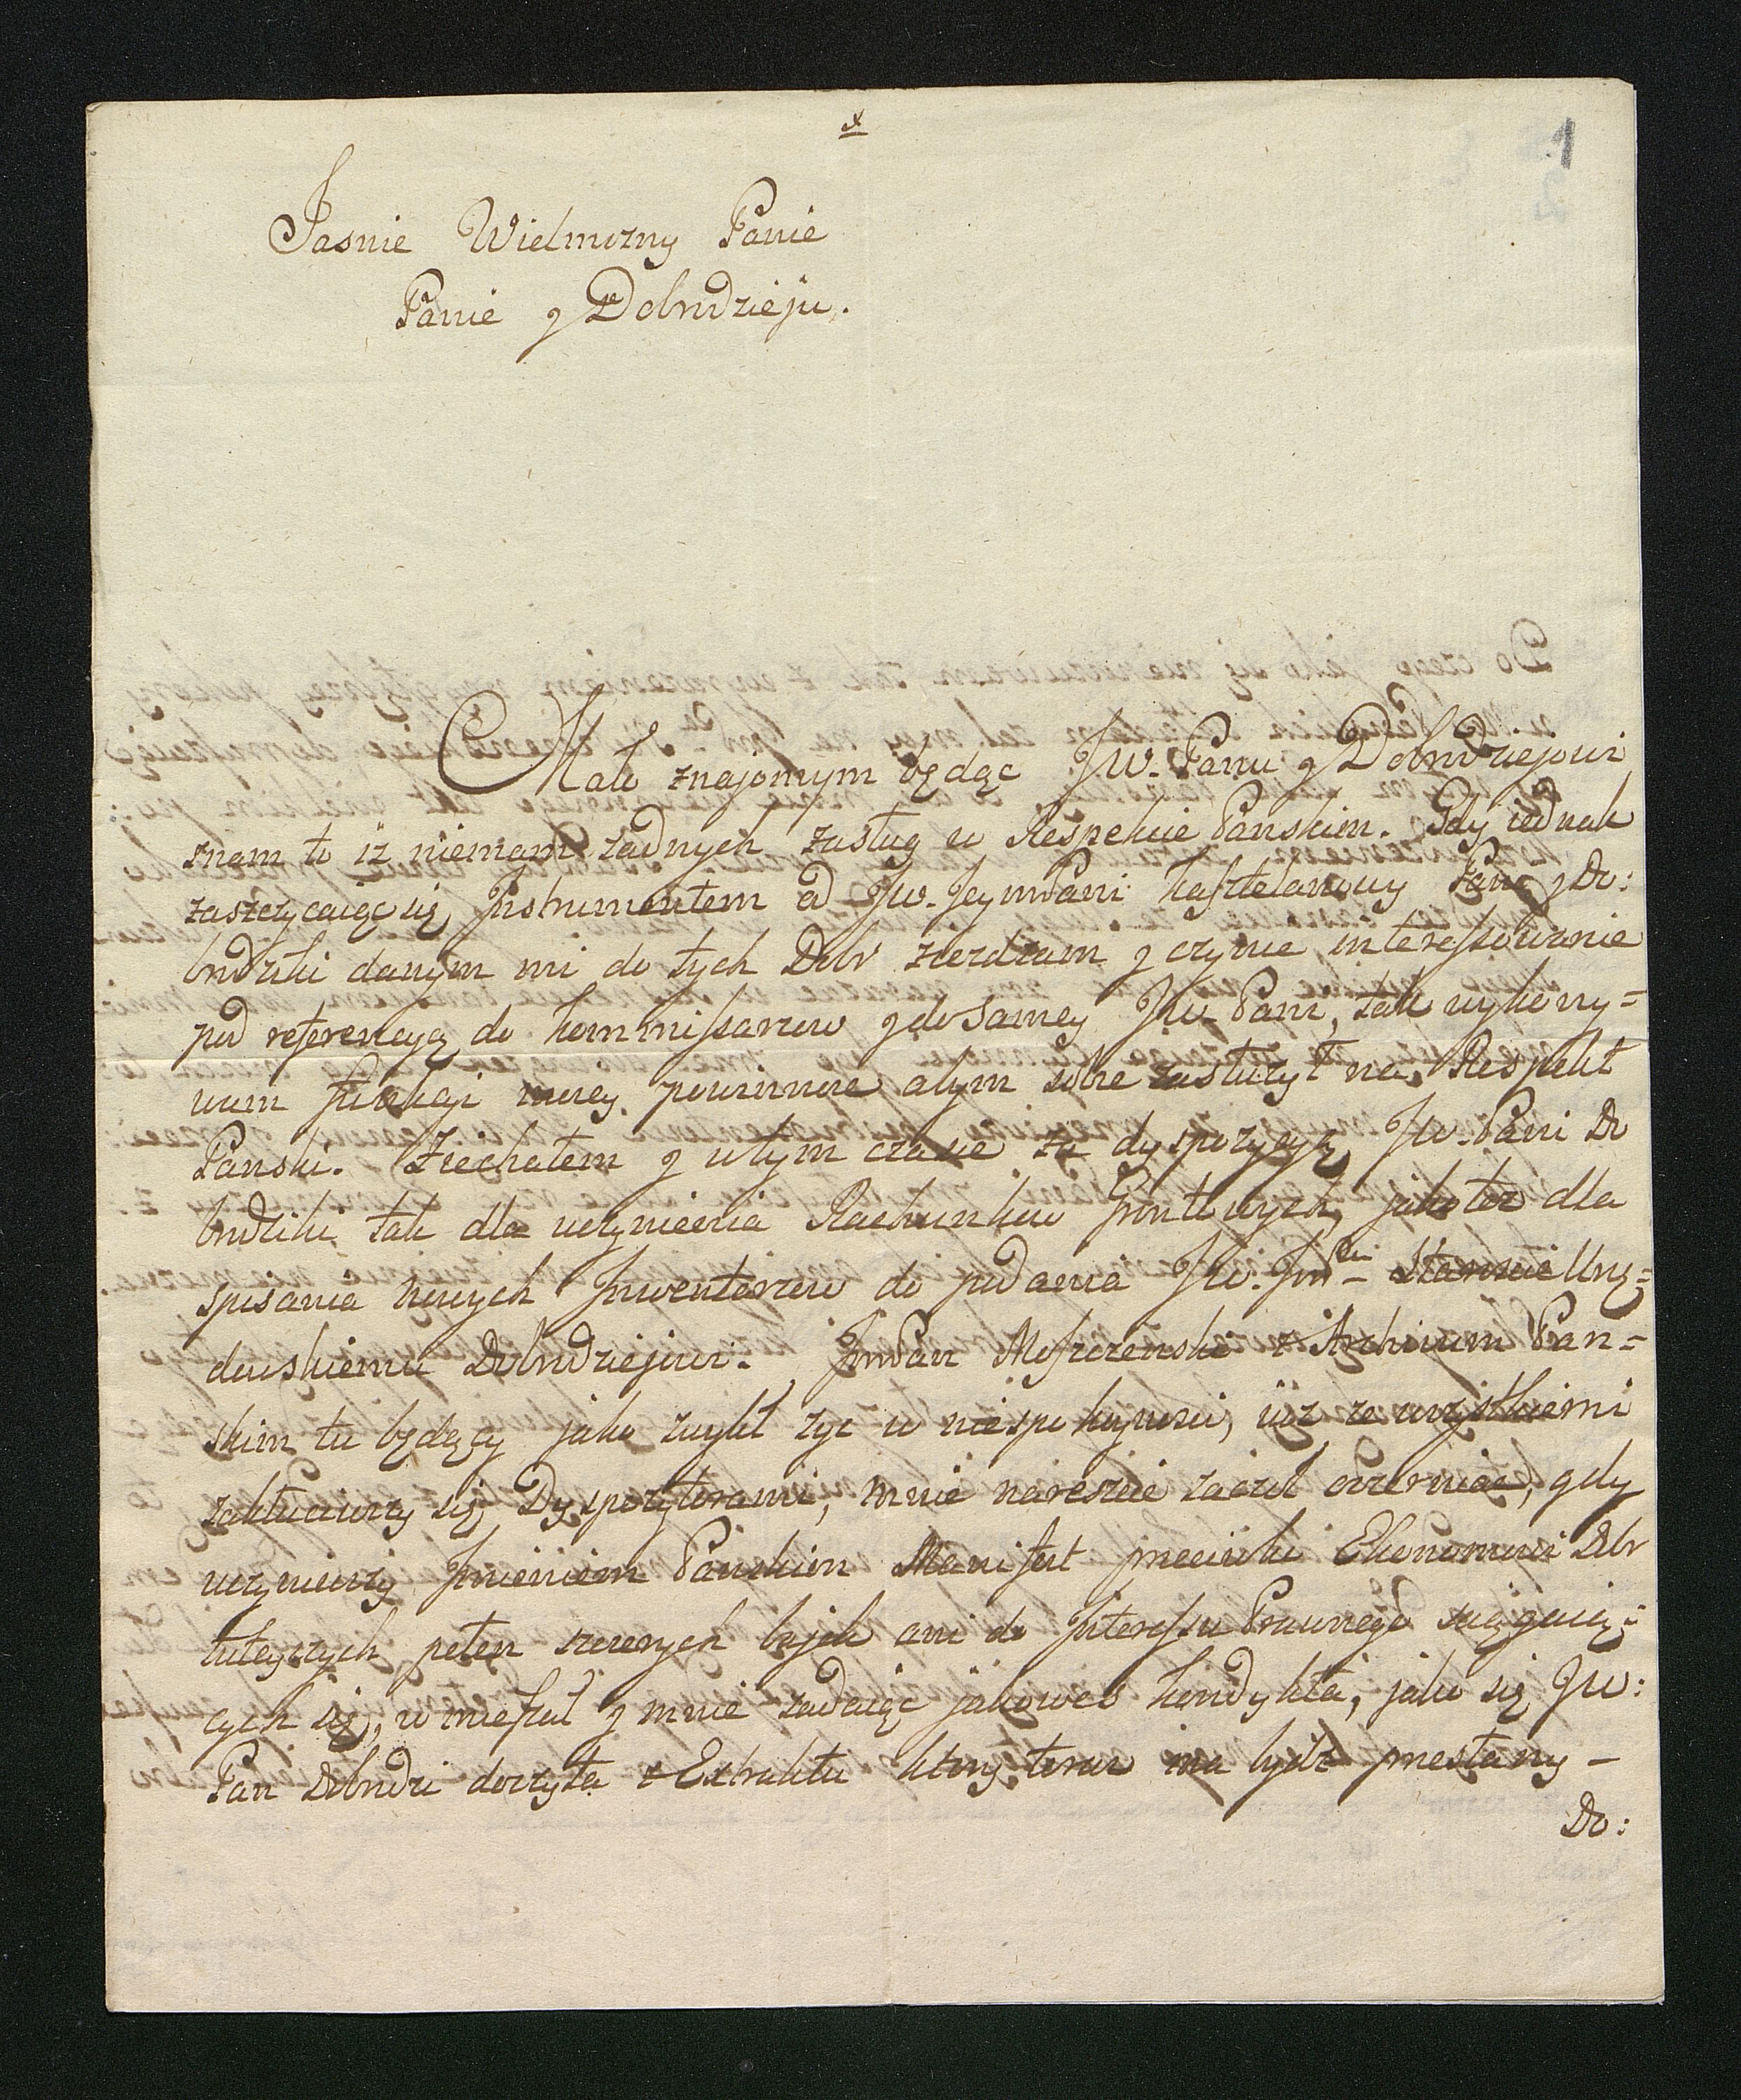 1
Jasnie Wielmozny Panie
Panie y Dobrodzieju.
Mało znajomym będąc JW. Panu y Dobrodziejowi
znam to iż niemam żadnych zasług w Respekcie Panskim. Gdy iednak
zaszczycaiąc się Instrumentem od JW. Jeymści Pani Kasztelanowy Pani y Do:
brodziki danym mi do tych Dobr zierdzam y czynie interessowanie
pod referencyą do kommissarzow y do samey JW Pani, tak wykony=
wam funkcji moiey powinnosc abym sobie zasłużył na Respekt
Panski. Ziechałem y w tym czasie za dyspozycyą JW. Pani Do
brodziki tak dla uczynienia Rachunkow Grontowych, jako też dla
spisania nowych Inwentarzow do podania JW. Jm Staroscie
Dobrodziejowi. Jm Pan Mosrczenski z Archiwum Pan=
skim tu będący jako zwykł żyć w niespokoynosci, iuż ze wszystkiemi
zakłuciwszy się Dyspozytorami, mnie nareszcie zaczął czerniać, gdy
uczyniwszy Jmieniem Panskim Manifest przeciwko Ekonomowi Dobr
tuteyszych pełen szczerych bajek ani do Interessu Prawnego sciągaią=
cych się, umieścił y mnie zadaiąc jakoweś kondykta, jako się JW:
Pan Dobrodzi doczyta z Extraktu ktory teraz ma bydz przesłany -
Do: